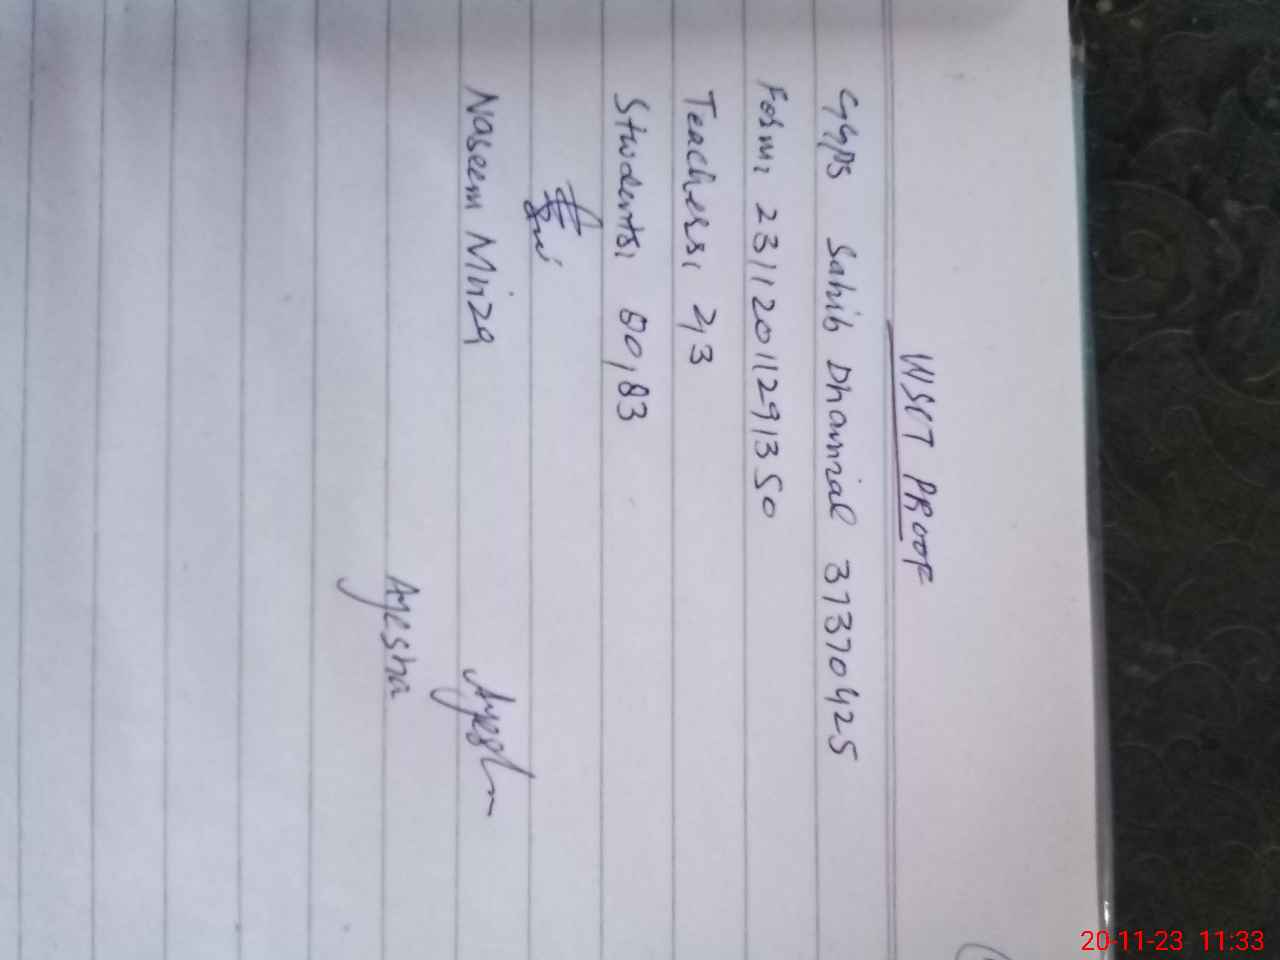 WSCT PROOF
GGPS Sahib Dhamial 37370425
Form: 23112011291350
Teachers: 2,3
Students: 80,83
Naseem Mirza
Ayesha
Ayesha
20-11-23 11:33